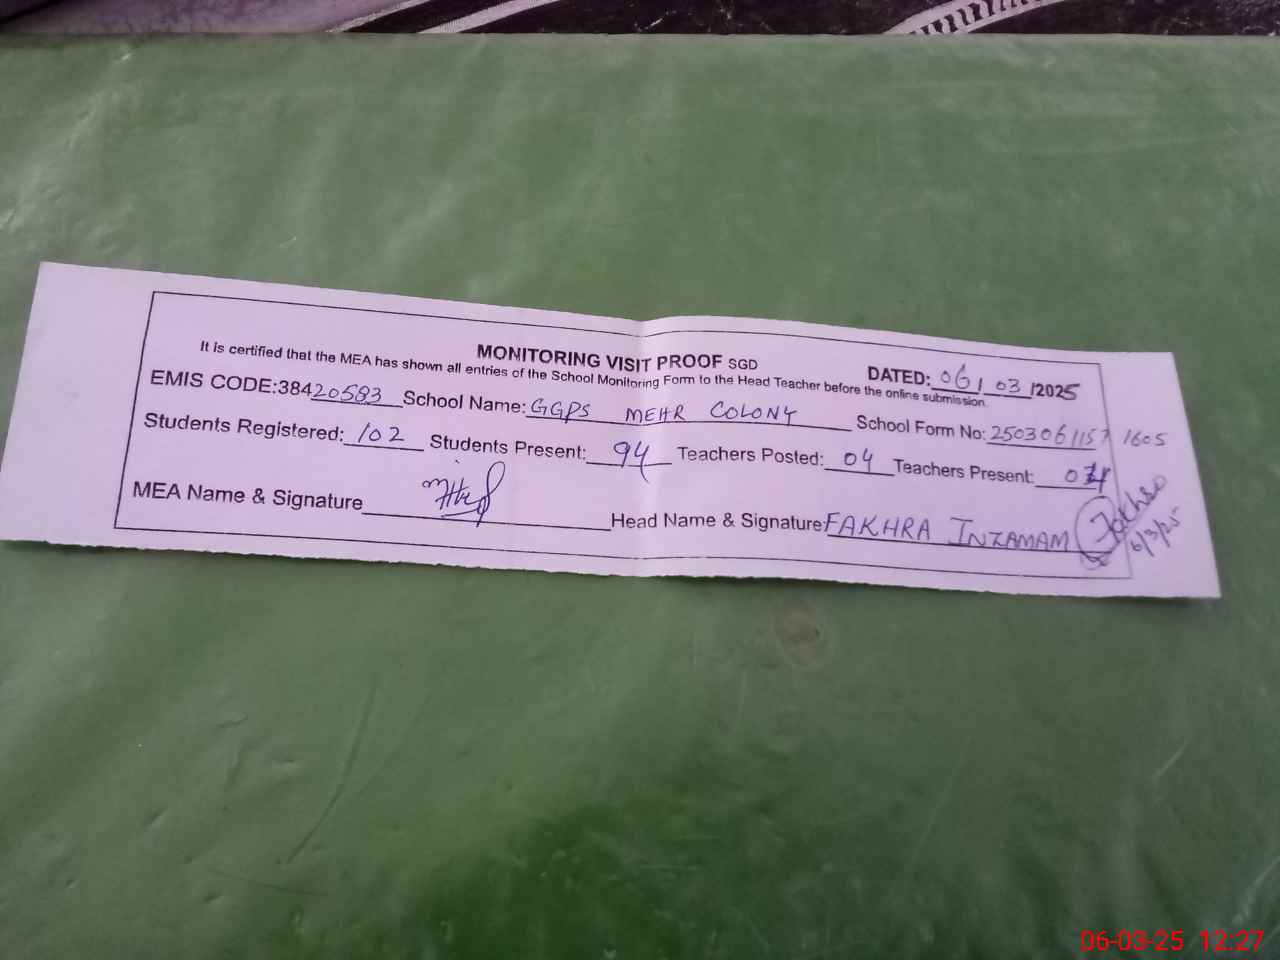 MONITORING VISIT PROOF SGD
DATED: 06/03/2025
It is certified that the MEA has shown all entries of the School Monitoring Form to the Head Teacher before the online submission.
EMIS CODE:38420583 School Name: GGPS MEHR COLONY School Form No: 25030611571605
Students Registered: 102 Students Present: 94 Teachers Posted: 04 Teachers Present: 04
MEA Name & Signature
Head Name & Signature: FAKHRA INZAMAM
6/3/25
06-03-25 12:27